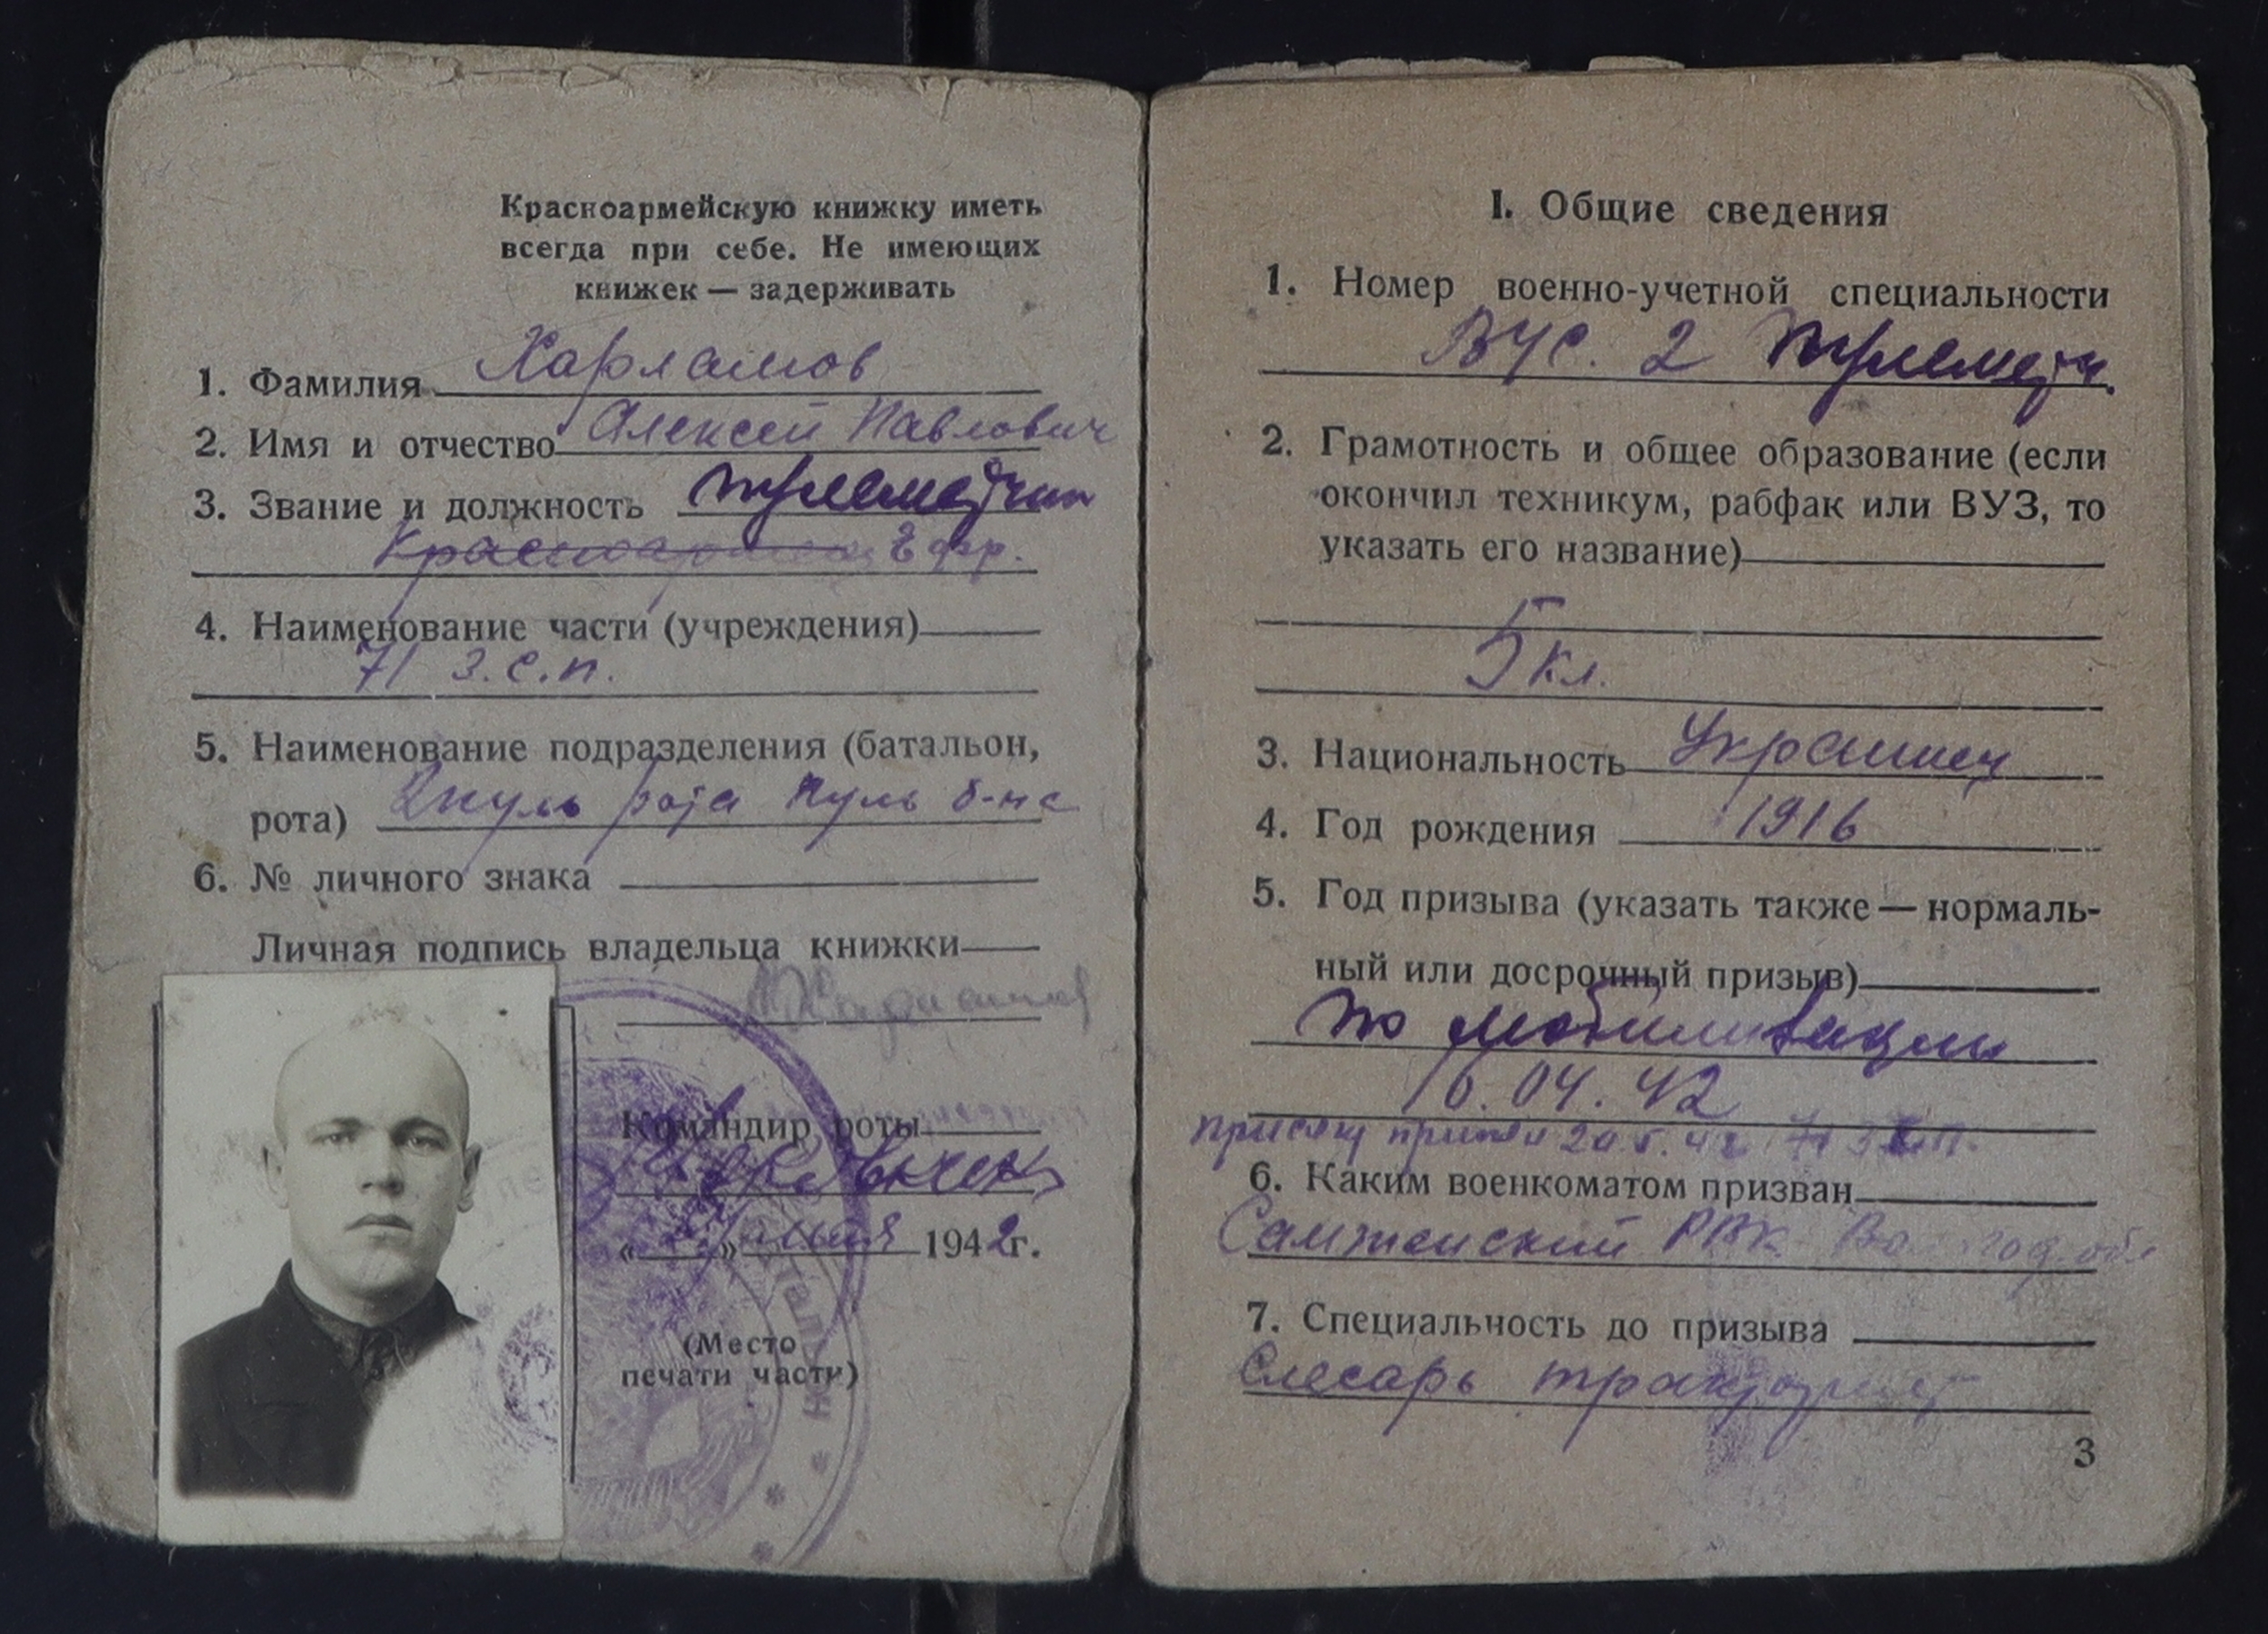 Красноармейскую книжку иметь
всегда при себе. Не имеющих
книжек — задерживать
1. Фамилия Харламов
2. Имя и отчество Алексей Павлович
3. Звание и должность пулеметчик
Красноармеец Ефр.
4. Наименование части (учреждения)
71 З.С.П.
5. Наименование подразделения (батальон,
рота) 2 пуль рота Пуль б-на
6. № личного знака
Личная подпись владельца книжки
Харламов
Командир роты
« » мая 1942г.
(Место
печати части)
I. Общие сведения
1. Номер военно-учетной специальности
ВУС. 2 Пулеметч.
2. Грамотность и общее образование (если
окончил техникум, рабфак или ВУЗ, то
указать его название)
5 кл.
3. Национальность Украинец
4. Год рождения 1916
5. Год призыва (указать также — нормаль-
ный или досрочный призыв)
по мобилизации
16.04.42
присягу принял 20.5.42 71 З.С.П.
6. Каким военкоматом призван
РВК Вологод. обл
7. Специальность до призыва
Слесарь тракторист
3